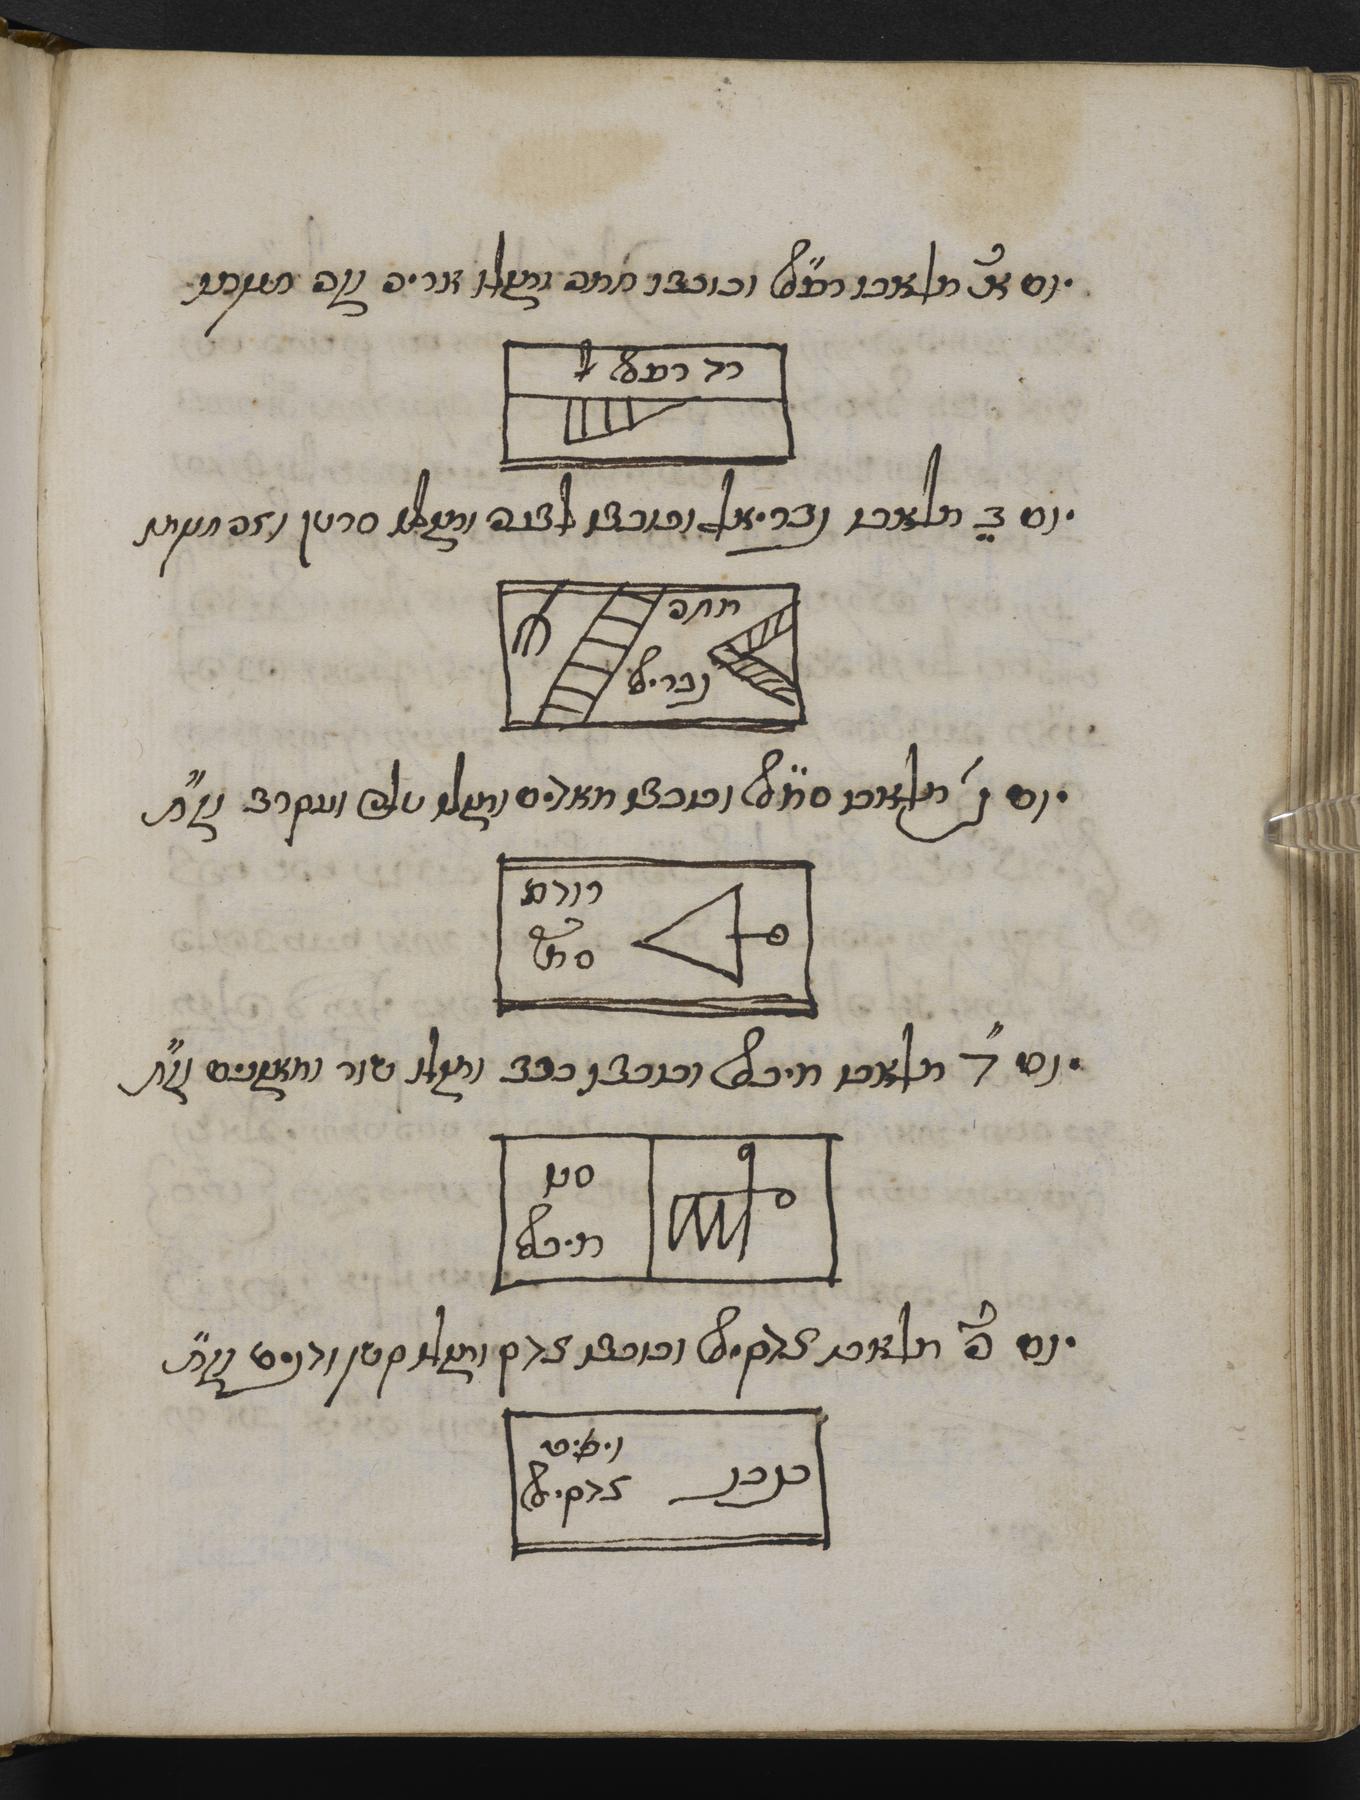 יום א׳ מלאכו רפ״אל וכוכבו חמה ומזלו אריה וזה חותמו
רפאל
יום ב׳ מלאכו גבריאל וכוכבו לבנה ומזלו סרטן וזה חותמו
חמה
גבריאל
יום ג׳ מלאכו סמ״אל וכוכבו מאדים ומזלו טלה ועקרב וז״ח
סמאל
יום ד׳ מלאכו מיכאל וכוכבו ככב ומזלו שור ומאזנים וז״ח
מיכאל
יום ה׳ מלאכו צדקיאל וכוכבו צדק ומזלו קשת ודגים וז״ח
צדקיאל